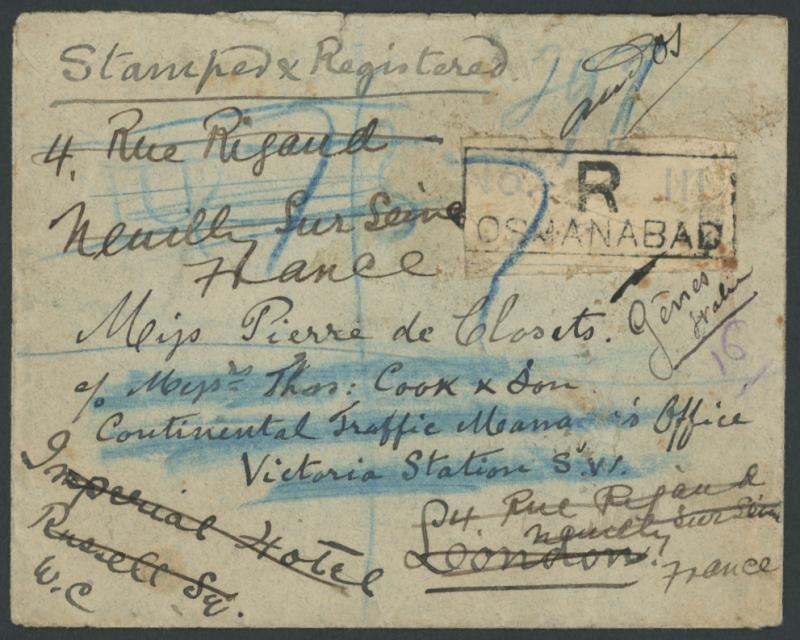 Stamped & Registered
4. Rue Rigaud
Neuilly Sur Seine
France
No. R 111
OSMANABAD
Miss Pierre de Closets.
Gênes
Italie
16
c/o Messrs Thos: Cook & Son
Continental Traffic Mana 's Office
Victoria Station S.W.
Imperial Hotel
Russell Sq.
W.C
4 Rue Rigaud
Neuilly Sur Seine
London!
France